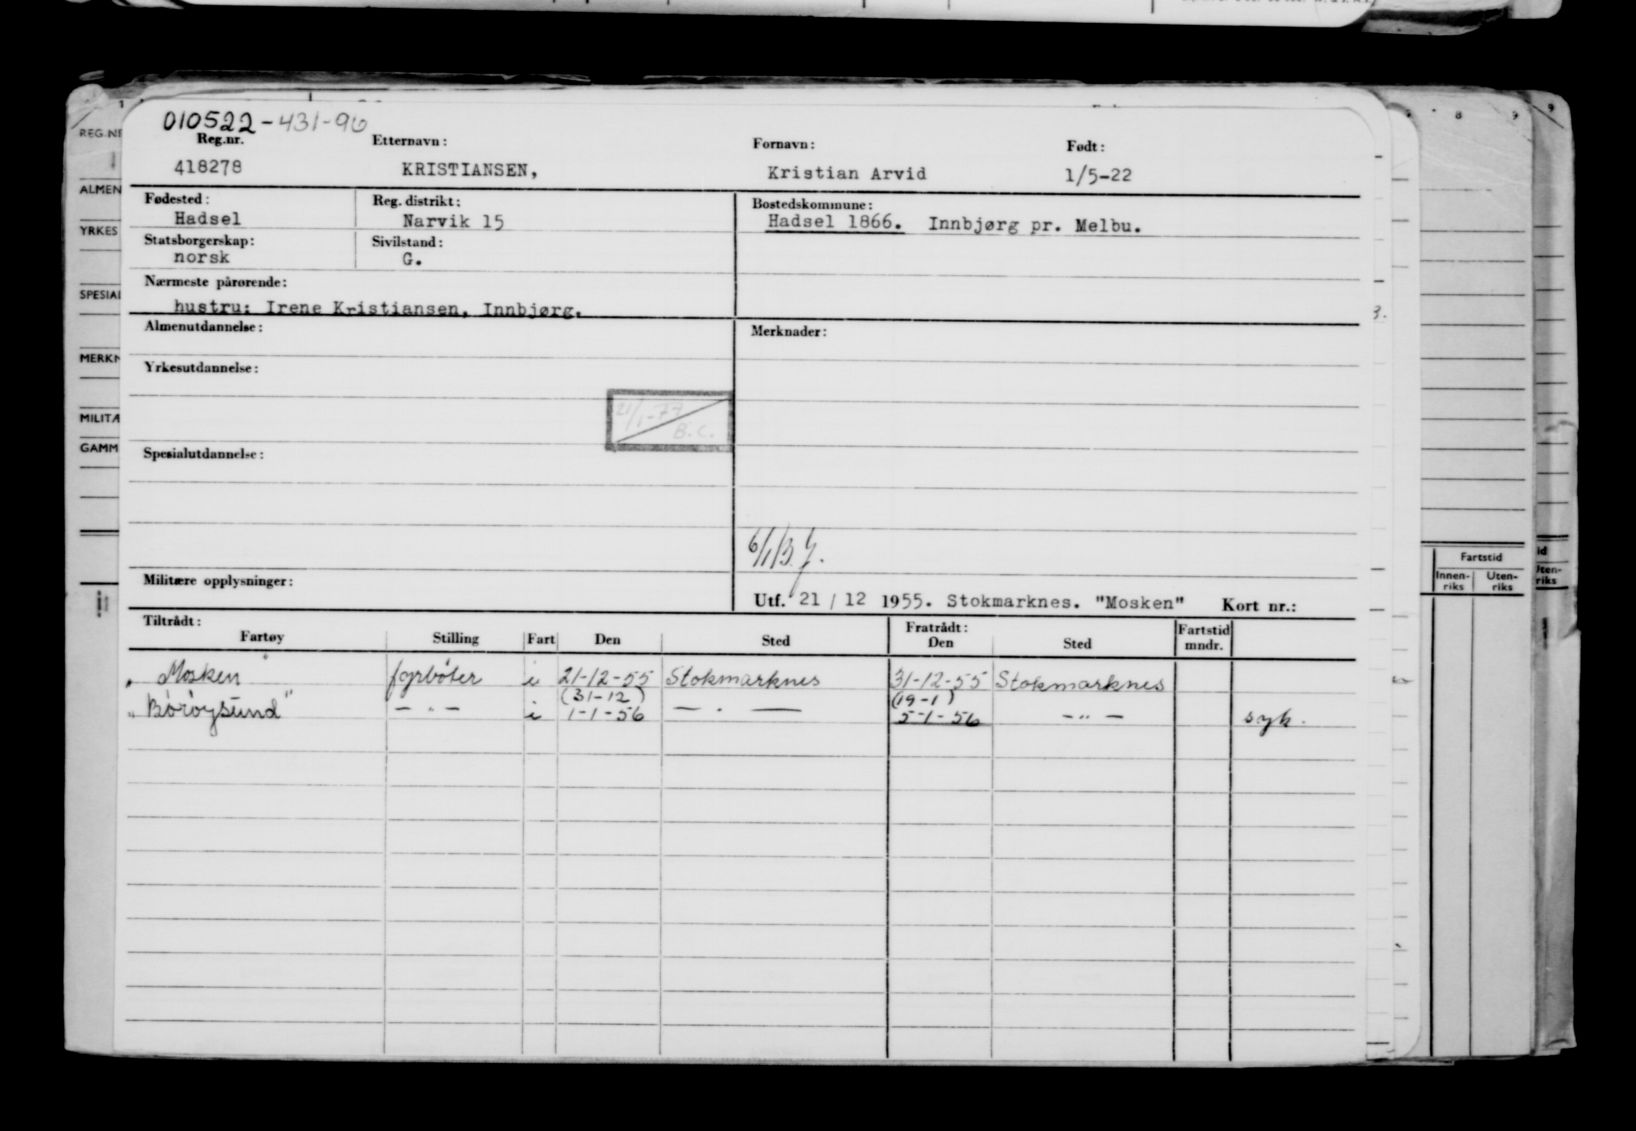 010522-431-96
Reg.nr. Etternavn: Fornavn: Født:
418278 KRISTIANSEN, Kristian Arvid 1/5-22
Fødested: Reg. distrikt: Bostedskommune:
Hadsel Narvik 15 Hadsel 1866. Innbjørg pr. Melbu.
Statsborgerskap: Sivilstand:
norsk G.
Nærmeste pårørende:
hustru: Irene Kristiansen, Innbjørg.
Almenutdannelse: Merknader:
Yrkesutdannelse:
21/1-77
B.C.
Spesialutdannelse:
6/1 B.J.
Militære opplysninger:
Utf. 21 / 12 1955. Stokmarknes. "Mosken" Kort nr.:
Tiltrådt: Fratrådt:
Fartøy Stilling Fart Den Sted Den Sted Fartstid mndr.
" Mosken " fyrbøter i 21-12-55 Stokmarknes 31-12-55 Stokmarknes
(31-12) (19-1)
" Børøysund " - " - i 1-1-56 - " - 5-1-56 - " - syk.
REG.NR
ALMEN
YRKES
SPESIAL
MERKN
MILITÆ
GAMM
Fartstid
Innen-riks Uten-riks
id
Uten-riks
8 9 9